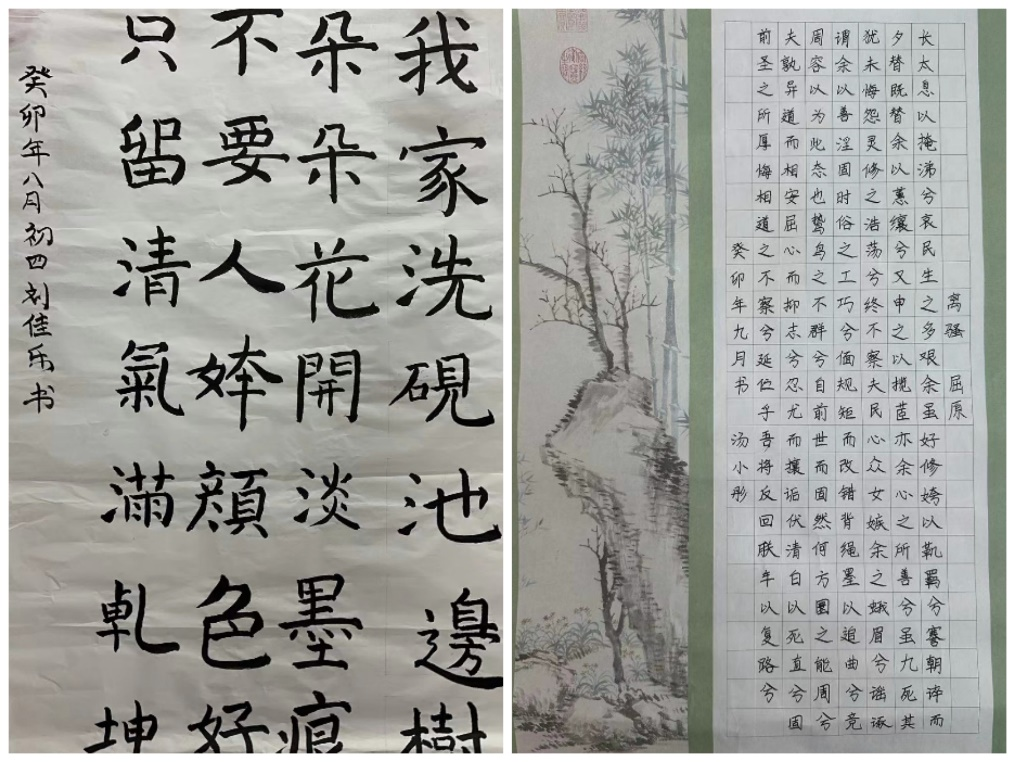 我家洗硯池邊樹
朵朵花開淡墨痕
不要人姱顔色好
只留清氣滿乹坤
癸卯年八月初四刘佳乐书
离骚 屈原
长太息以掩涕兮哀民生之多艰余虽好修姱以鞿羁兮謇朝谇而
夕替既替余以蕙纕兮又申之以揽茝亦余心之所善兮虽九死其
犹未悔怨灵修之浩荡兮终不察夫民心众女嫉余之蛾眉兮谣诼
谓余以善淫固时俗之工巧兮偭规矩而改错背绳墨以追曲兮竞
周容以为此态也鸷鸟之不群兮自前世而固然何方圜之能周兮
夫孰异道而相安屈心而抑志兮忍尤而攘诟伏清白以死直兮固
前圣之所厚悔相道之不察兮延伫乎吾将反回朕车以复路兮
癸卯年九月书 汤小彤